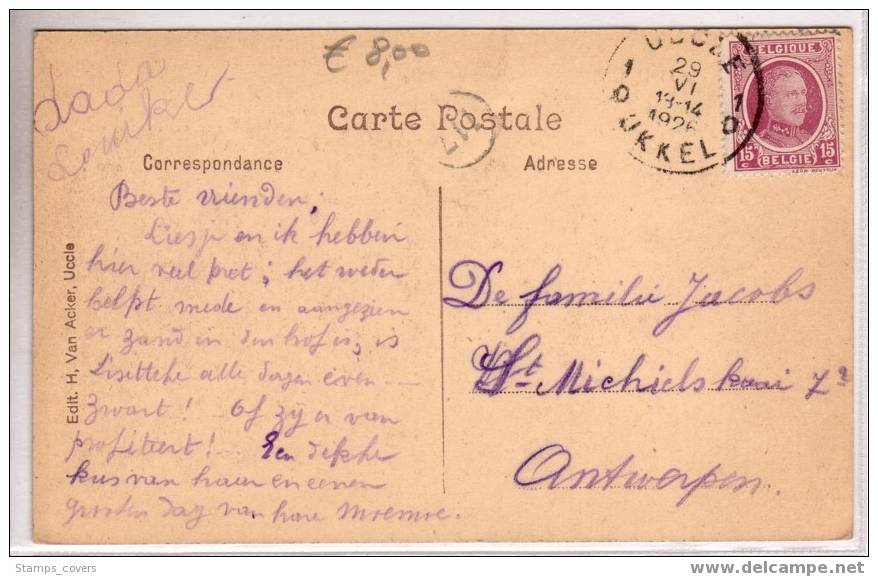 dada
€ 8,00
UCCLE
29
VI
13-14
1926
1 D
1 D
UKKEL
BELGIQUE
15c 15c
BELGIE
Carte Postale
Correspondance
Adresse
Edit. H, Van Acker, Uccle
Beste vrienden,
Liesje en ik hebben
hier veel pret; het weder
helpt mede en aangezien
er zand in den hof is, is
Lisettche alle dagen even
zwart! Of zij er van
profiteert! Een dikke
kus van haar en eenen
grooten dag van hare
De familie Jacobs
St Michielskaai 7
Antwerpen.
Stamps_covers
www.delcampe.net